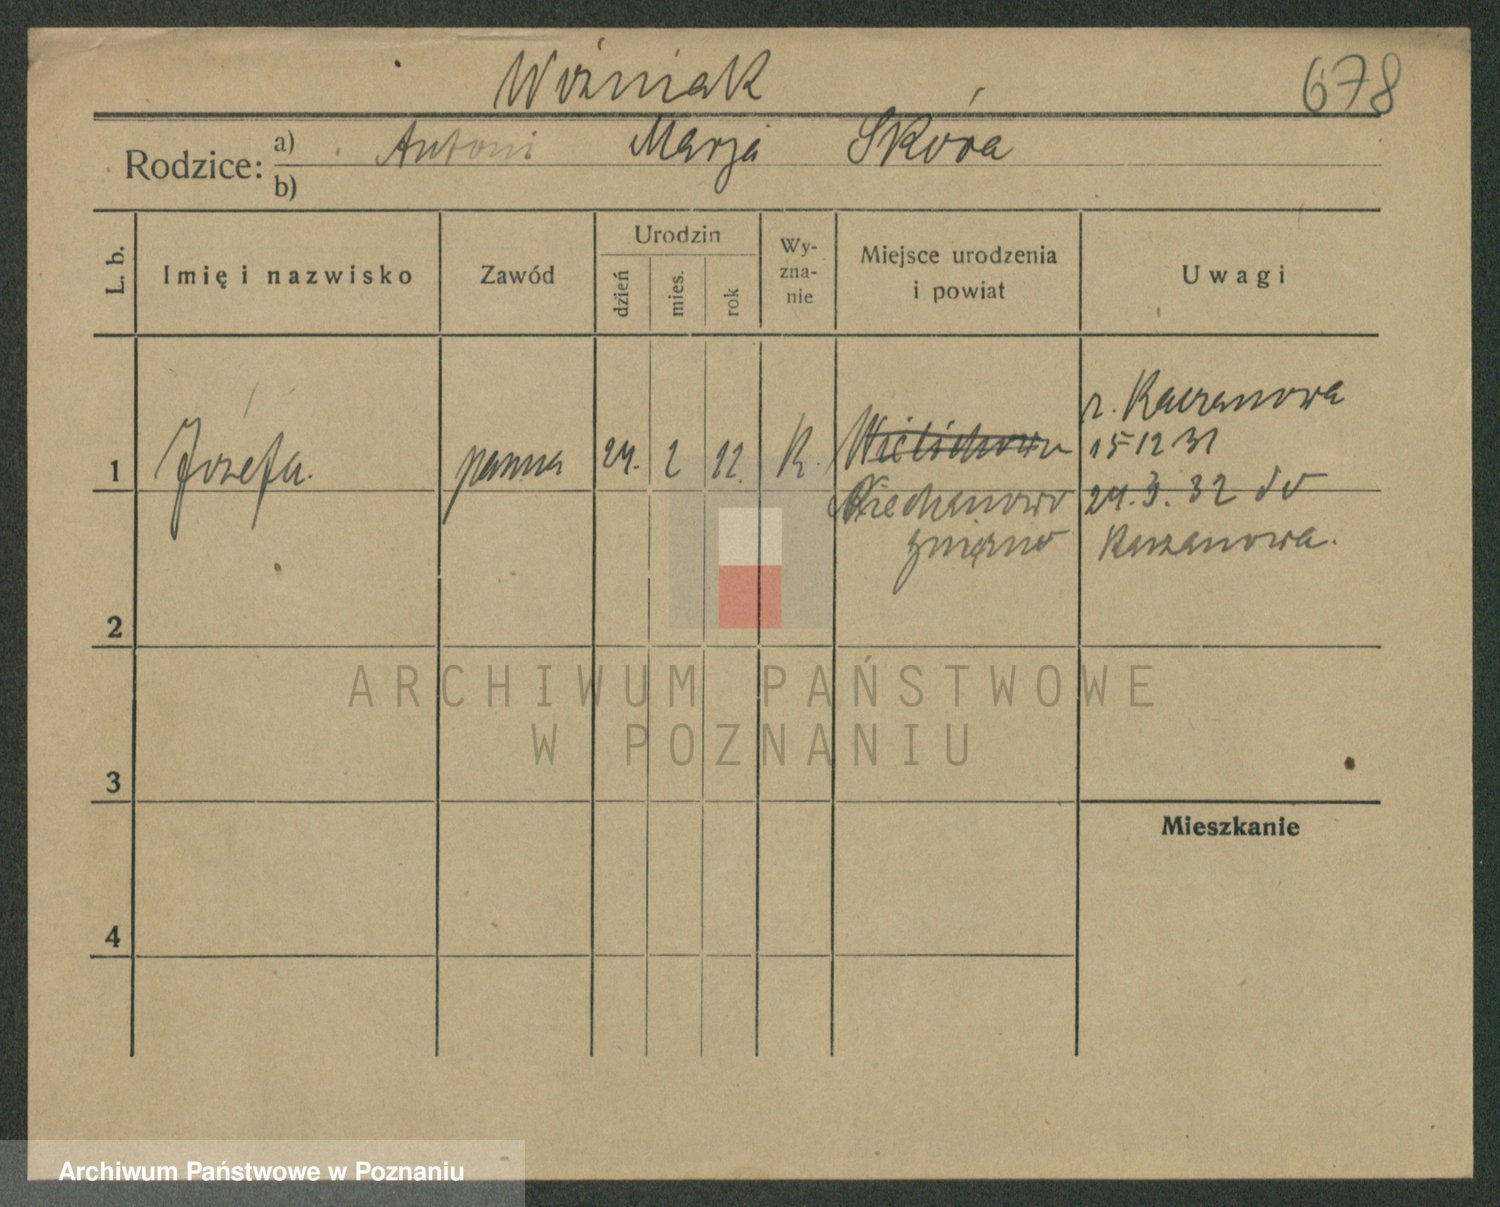 Woźniak 678
Rodzice: a) Antoni Marja Skóra
b)
L. b. Imię i nazwisko Zawód Urodzin dzień mies. rok Wyznanie Miejsce urodzenia i powiat Uwagi
z. Kaczanowa
1 Józefa. panna 24. 2 12. R. Wielichowo 15 12 31
Miechanowo 24. 3. 32 do
gnieźno Kaczanowa.
2
ARCHIWUM PAŃSTWOWE
W POZNANIU
3
Mieszkanie
4
Archiwum Państwowe w Poznaniu